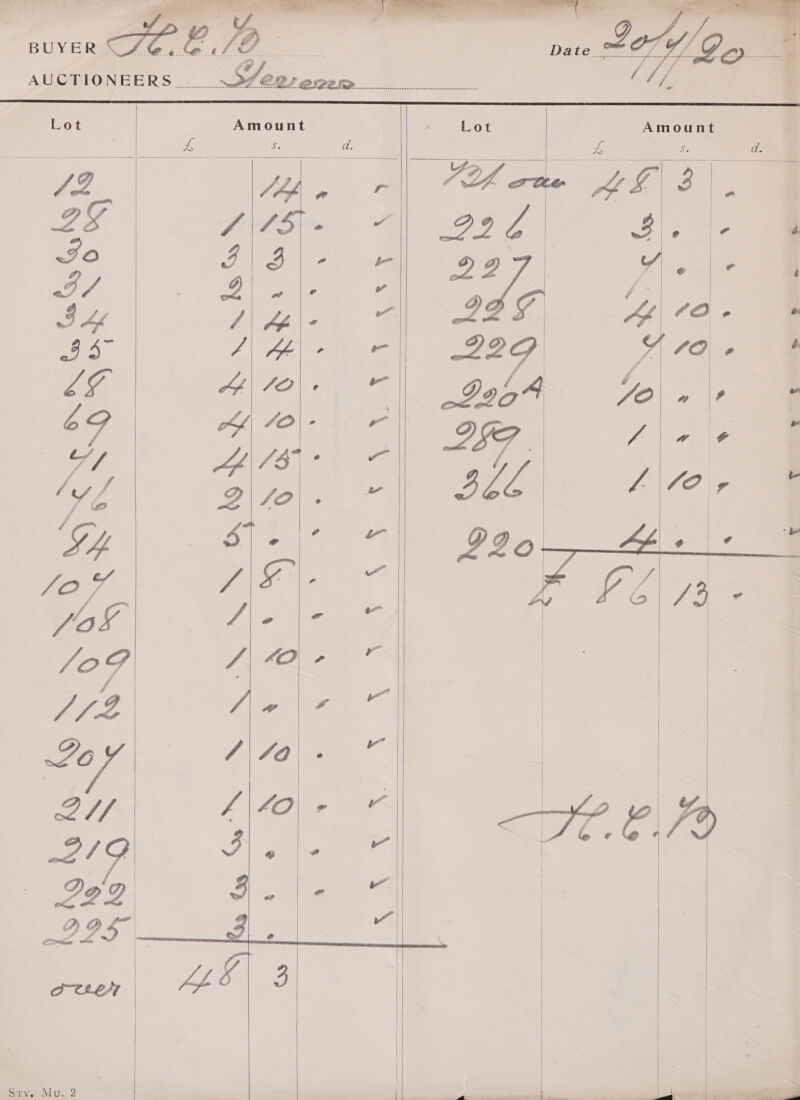 BUYER H.C.B Date 20/7/20
AUCTIONEERS Stevens
Lot Amount Lot Amount
£ s. d. £ s. d.
12 14 - ✓ over 48 3 -
28 1 15 - ✓ 226 3 - -
30 3 3 - ✓ 227 7 - -
31 2 - - ✓ 228 4 10 -
34 1 4 - ✓ 229 7 10 -
35 1 4 - ✓ 220A 10 - -
68 4 10 - ✓ 289 1 - -
69 4 10 - ✓ 366 1 10 - ✓
71 4 15 - ✓ 220 4 - -
76 2 10 - ✓ £ 86 13 -
84 5 - - ✓
107 1 8 - ✓
108 1 - - ✓
109 1 10 - ✓
112 1 - - ✓
207 1 10 - ✓
211 1 10 - ✓ H.C.B
219 3 - - ✓
222 3 - - ✓
225 3 - ✓
over 48 3
Sty. Mu. 2